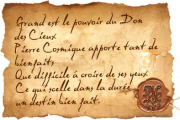 Grand est le pouvoir du Don
des Cieux
Pierre Cosmique apporte tant de
bienfaits
Que difficile à croire de ses yeux
Ce qui scelle dans la durée
un destin bien fait.